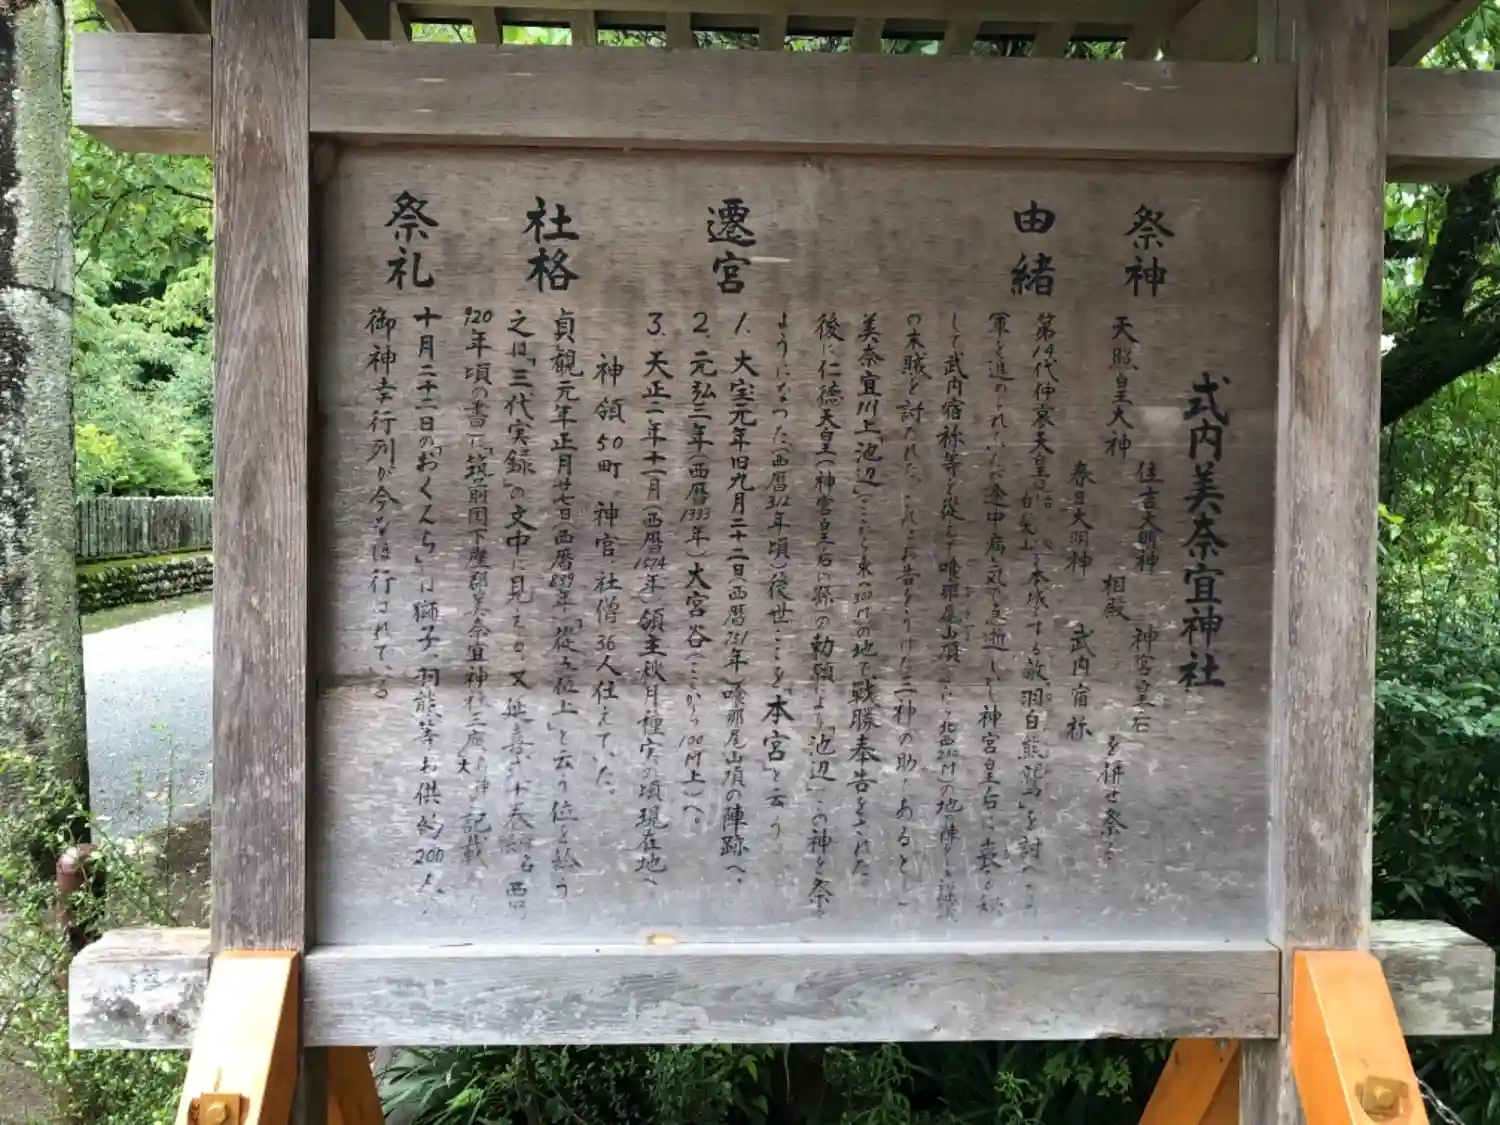 式内美奈宜神社
祭神
天照皇大神
住吉大明神
春日大明神
相殿
神宮皇后
武内宿祢
を併せ祭る
由緒
第14代仲哀天皇は
白髪山 を本城とする敵「羽白熊鷲」を討へ
軍を進められていたが途中病気で急逝し 神宮皇后
して武内宿祢等を従えて喰那尾山頂 北西200Mの地 陣
の末賊を討たれた。これはお告をうけた三神の助 あるとし
美奈宜川上「池辺」ここから東へ300Mの地で戦勝奉告をされた。
後に仁徳天皇(神宮皇后の孫)の勅願により「池辺」この神を祭
ようになった(西暦312年頃)後世ここを「本宮」と云う
遷宮
1. 大宝元年旧九月二十二日(西暦751年)喰那尾山頂の陣跡へ。
2. 元弘三年(西暦1333年)大宮谷(ここから100M上)へ。
3. 天正二年十一月(西暦1574年)領主秋月種実の頃現在地へ
神領50町 神官、社僧36人仕えていた。
社格
貞観元年正月廿七日(西暦859年)「從五位上」と云う位を給う
之は「三代実録」の文中に見える 又延喜式十巻 名 西暦
920年頃の書に「筑前国下座郡美奈宜神社三座 大 神」と記載
祭礼
十月二十二日の「おくんち」は獅子、羽熊等お供約200人
御神幸行列が今なほ行はれている